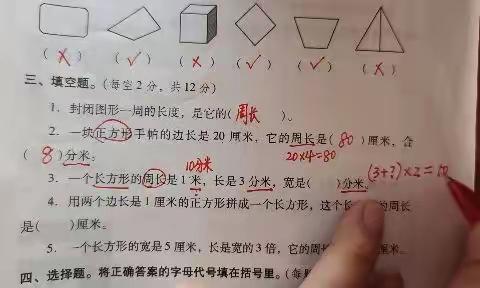 (×) (✓) (×) (✓) (✓) (×)
三、填空题。(每空2分，共12分)
1. 封闭图形一周的长度，是它的(周长)。
2. 一块正方形手帕的边长是20厘米，它的周长是(80)厘米，合
(8)分米。
20×4=80
10分米
3. 一个长方形的周长是1米，长是3分米，宽是( )分米。
(3+?)×2=10
4. 用两个边长是1厘米的正方形拼成一个长方形，这个长 的周长
是( )厘米。
5. 一个长方形的宽是5厘米，长是宽的3倍，它的周 厘米。
四、选择题。将正确答案的字母代号填在括号里。(每